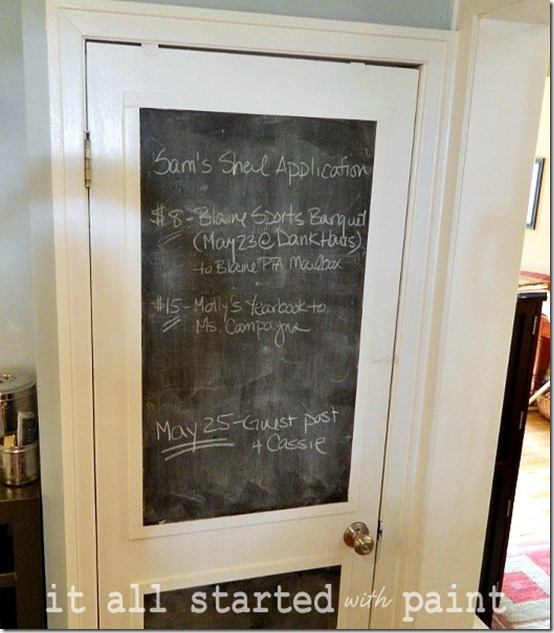 'Sam's Sheil Application'
$8 - Blaine Sports Banquet
(May 23 @ DankHaus)
to Blaine PTA Mailbox
$15 - Molly's Yearbook to
Ms. Campagna
May 25 - Guest post
4 Cassie
it all started with paint